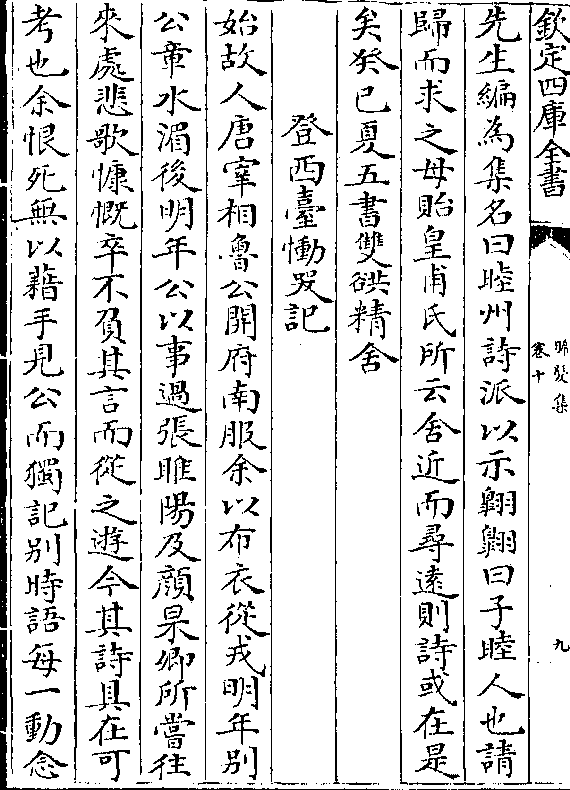 欽定四庫全書
晞髮集
卷十
九
先生編為集名曰睦州詩派以示翺翺曰子睦人也請
歸而求之毋貽皇甫氏所云舍近而尋遠則詩或在是
矣癸巳夏五書雙谼精舍
登西臺慟哭記
始故人唐宰相魯公開府南服余以布衣從戎明年别
公章水湄後明年公以事過張睢陽及顔杲卿所嘗往
來處悲歌慷慨卒不負其言而從之遊今其詩具在可
考也余恨死無以藉手見公而獨記别時語每一動念